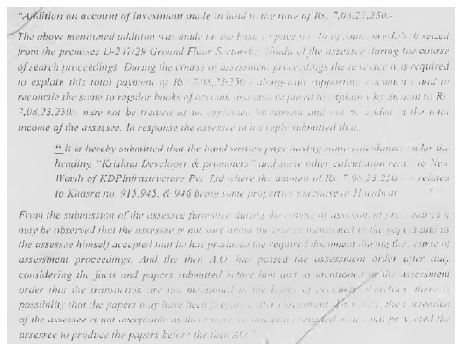 "Addition on account of investment made in land to the tune of Rs. 7,08,23,250.-
The above mentioned addition was made on the basis of page no. of seized
from the premises D-247/29 Ground Floor Sector-63 Noida of the assessee during the course
of search proceedings. During the course of assessment proceedings the assessee was required
to explain this total payment of Rs 7,08,23,250 alongwith supporting documents and to
reconcile the same to regular books of account and also required to explain why amount to Rs
7,08,23,250/- may not be treated as unexplained investment and not be added in the total
income of the assessee. In response the assessee in its reply submitted that.
"It is hereby submitted that the hand written page having some calculations under the
heading "Krishna Developer & promoters" and some other calculation relate to New
Warsh of KDP Infrastructure Pvt. Ltd where the amount of Rs 7,08,23,250/- is related
to Khasra no. 915,945, & 946 being some properties purchase in Haridwar
From the submission of the assessee furnished during the course of assessment proceedings it
may be observed that the assessee is not sure about the entries mentioned in the papers and as
the assessee himself accepted that he has produced the required document during the course of
assessment proceedings. And the then AO has passed the assessment order after duly
considering the facts and papers submitted before him and as mentioned in the assessment
order that the transactions are not mentioned in the books of account therefore there is
possibility that the papers may have been prepared after assessment. Therefore, the contention
of the assessee is not acceptable as there were no situation prevailed which had prevented the
assessee to produce the papers before the then AO."